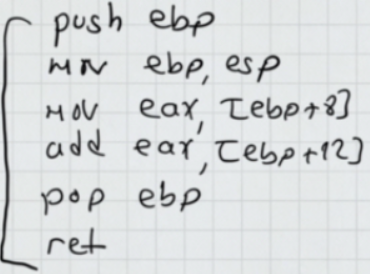 push ebp
mov ebp, esp
mov eax, [ebp+8]
add eax, [ebp+12]
pop ebp
ret